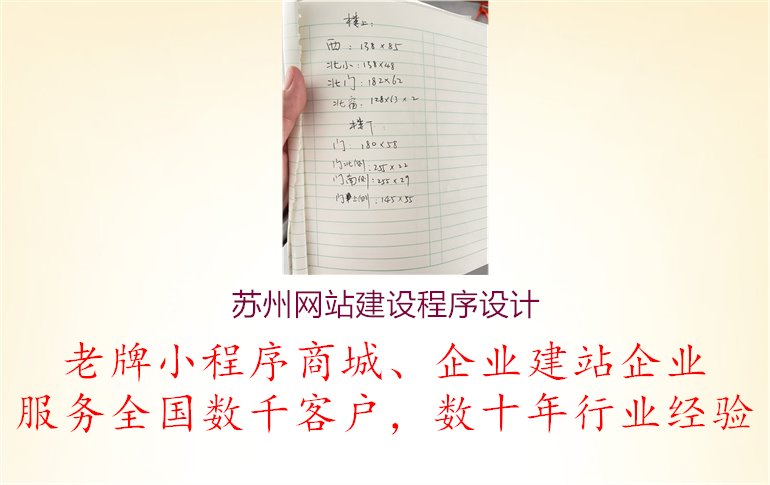 楼上：
西：138×85
北小：138×48
北门：182×62
北窗：128×63×2
楼下：
门：180×58
门北侧：255×22
门南侧：255×29
门上侧：145×55
苏州网站建设程序设计
老牌小程序商城、企业建站企业
服务全国数千客户，数十年行业经验